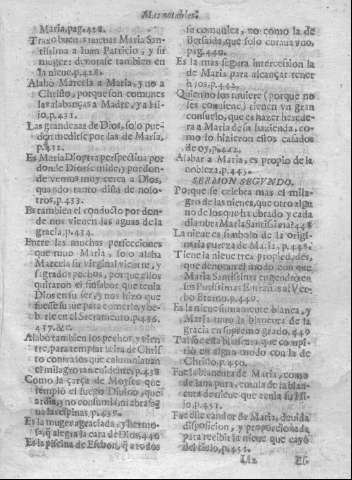 Mas notables.
Maria. pag. 428.
buenas Maria San-
tissima a Iuan Patricio, y su
muger: denotase tambien en
la nieue. p. 428.
Alabò Marcela a Maria, y no a
Christo, porque son comunes
las alabanças a Madre, y a Hi-
jo. p. 431.
Las grandezas de Dios, solo pue-
den medirse por las de Maria,
p. 432.
Es Maria Dioptra perspectiua por
donde Dios se mide, y por don-
de vemos muy cerca a Dios,
quando tanto dista de noso-
tros, p. 433.
Es tambien el conducto por don-
de nos vienen las aguas de la
gracia. p. 434.
Entre las muchas perfecciones
que tuuo Maria, solo alaba
Marcela su virginal vientre, y
sagrados pechos, por que ellos
quitaron el sinsabor que tenia
Dios en su ser, y nos hizo que
fuesse suaue para comerle, y be-
berle en el Sacramento. p. 436.
437. &c.
Alabò tambien los pechos, y vien-
tre, para templar la ira de Chris-
to contra los que calumniauan
el milagro tan euidente, p. 438
Como la çarça de Moyses que
templò el fuego Diuino, que
ardia, y no consumia, ni abrasa-
ua las espinas. p. 439.
Es la muger agraciada, y hermo-
sa, que alegra la cara de Dios, 440
Es la piscina de Esebon, que a todos
se comunica, no como la de
Betsaida, que solo curaua vno.
pag. 440.
Es la mas segura intercession la
de Maria para alcançar tener
hijos. p. 443.
Quien no los tuuiere (porque no
les conuiene) tienen vn gran
consuelo, que es hazer herede-
ra a Maria de su hazienda, co-
mo lo hizieron estos casados
de oy, p. 442.
Alabar a Maria, es propio de la
nobleza. 443.
SERMON SEGVNDO.
Porque se celebra mas el mila-
gro de las nieues, que otro algu-
no de los que ha obrado y cada
dia obra Maria Santissima? 448
La nieue es simbolo de la origi-
naria pureza de Maria, p. 448.
Tiene la nieue tres propiedades,
que denotan el modo con que
Maria Santissima engendrò en
sus Purissimas Entrañas al Ver-
bo Eterno. p. 449.
Es la nieue sumamente blanca, y
Maria tuuo la blancura de la
gracia en supremo grado. 449
Tal fue esta blancura, que compi-
tio en algun modo con la de
Christo. p. 450.
Fue la blancura de Maria, como
de lana pura, toda de la blan-
cura de nieue que tenia su Hi-
jo. p. 451.
Fue este candor de Maria, deuida
disposicion, y proporcionada
para recibir la nieue que cayò
del cielo, p. 451.
Es